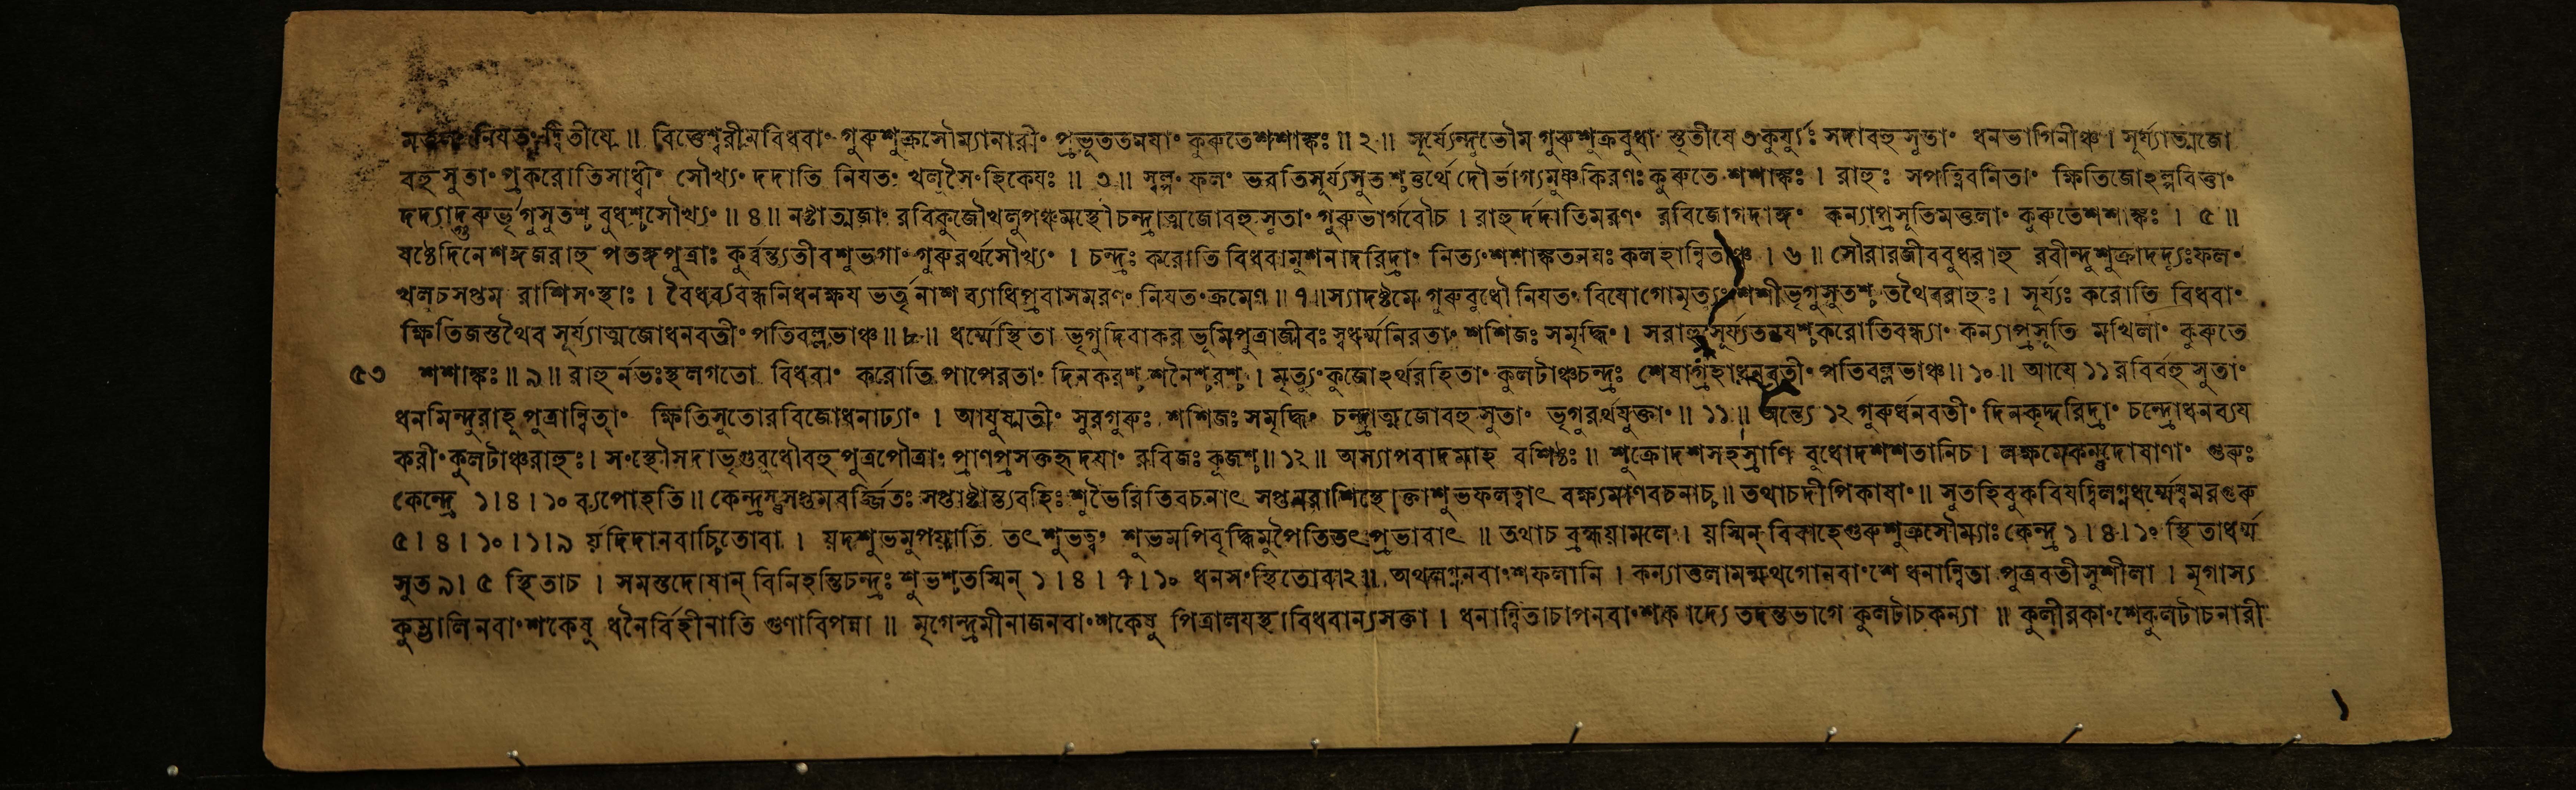 মতুলাং নিযতং দ্বিতীযে ॥ বিত্তেশ্বরীমবিধবাং গুরুশুক্রসৌম্যানারীং প্রভূততনযাং কুরুতেশশাঙ্কঃ ॥ ২ ॥ সূর্য্যেন্দুভৌম গুরুশুক্রবুধা স্তৃতীযে ৩ কুর্য্যুঃ সদাবহুসুতাং ধনভাগিনীঞ্চ । সূর্য্যাত্মজো
বহুসুতাং প্রকরোতিসাধ্বীং সৌখ্যং দদাতি নিযতং খলুসৈংহিকেযঃ ॥ ৩ ॥ স্বল্পং ফলং ভবতিসূর্য্যসুতশ্চতুর্থে দৌর্ভাগ্যমুষ্ণকিরণঃ কুরুতে শশাঙ্কঃ । রাহুঃ সপত্নিবনিতাং ক্ষিতিজোঽল্পবিত্তাং
দদ্যাদ্গুরুর্ভৃগুসুতশ্চ বুধশ্চসৌখ্যং ॥ ৪ ॥ নষ্টাত্মজাং রবিকুজৌখলুপঞ্চমস্থৌ চন্দ্রাত্মজোবহুসুতাং গুরুভার্গবৌচ । রাহুর্দদাতিমরণং রবিজোগদাঙ্গং কন্যাপ্রসূতিমতুলাং কুরুতেশশাঙ্কঃ । ৫ ॥
ষষ্ঠেদিনেশঙ্গজরাহু পতঙ্গপুত্রাঃ কুর্ব্বন্ত্যতীবশুভগাং গুরুরর্থসৌখ্যং । চন্দ্রঃ করোতি বিধবামুশনাদরিদ্রাং নিত্যংশশাঙ্কতনযঃ কলহান্বিতাঞ্চ । ৬ ॥ সৌরারজীববুধরাহু রবীন্দুশুক্রাদদ্যুঃফলং
খলুচসপ্তম রাশিসংস্থাঃ । বৈধব্যবন্ধনিধনক্ষয ভর্তৃনাশ ব্যাধিপ্রবাসমরণং নিযতং ক্রমেণ ॥ ৭ ॥ স্যাদষ্টমে গুরুবুধৌ নিযতং বিযোগোমৃত্যুঃ শশীভৃগুসুতশ্চ তথৈবরাহুঃ । সূর্য্যঃ করোতি বিধবাং
ক্ষিতিজস্তথৈব সূর্য্যাত্মজোধনবতীং পতিবল্লভাঞ্চ ॥ ৮ ॥ ধর্ম্মেস্থিতা ভৃগুদিবাকর ভূমিপুত্রাজীবঃ স্বধর্ম্মনিরতাং শশিজঃ সমৃদ্ধিং । সরাহুসূর্য্যতনযশ্চকরোতিবন্ধ্যাং কন্যাপ্রসূতি মখিলাং কুরুতে
৫৩ শশাঙ্কঃ ॥ ৯ ॥ রাহুর্নভঃস্থলগতো বিধবাং করোতি পাপেরতাং দিনকরশ্চ শনৈশ্চরশ্চ । মৃত্যুংকুজোঽর্থরহিতাং কুলটাঞ্চচন্দ্রঃ শেষাগ্রহাধনবতীং পতিবল্লভাঞ্চ ॥ ১০ ॥ আযে ১১ রবির্বহুসুতাং
ধনমিন্দুরাহু পুত্রান্বিতাং ক্ষিতিসুতোরবিজোধনাঢ্যাং । আযুষ্মতীং সুরগুরুঃ শশিজঃ সমৃদ্ধিং চন্দ্রাত্মজোবহুসুতাং ভৃগুরর্থযুক্তাং ॥ ১১ ॥ অন্ত্যে ১২ গুরুর্ধনবতীং দিনকৃদ্দরিদ্রাং চন্দ্রোধনব্যয
করীং কুলটাঞ্চরাহুঃ । সংস্থৌসদাভৃগুবুধৌবহুপুত্রপৌত্রাং প্রাণপ্রসক্তহৃদযাং রবিজঃ কুজশ্চ ॥ ১২ ॥ অস্যাপবাদমাহ বশিষ্ঠঃ ॥ শুক্রোদশসহস্রাণি বুধোদশশতানিচ । লক্ষমেকন্তুদোষাণাং গুরুঃ
কেন্দ্রে ১ । ৪ । ১০ ব্যপোহতি ॥ কেন্দ্রন্তুসপ্তমবর্জ্জিতঃ সপ্তাষ্টান্ত্যবহিঃ শুভৈরিতিবচনাৎ সপ্তমরাশিস্থে ক্তাশুভফলত্বাৎ বক্ষ্যমাণবচনাচ্চ ॥ তথাচদীপিকাযাং ॥ সুতহিবুকবিযদ্বিলগ্নধর্ম্মেষ্বমরগুরু
৫ । ৪ । ১০ । ১ । ৯ র্যদিদানবার্চ্চিতোবা । যদশুভমুপযাতি তৎশুভত্বং শুভমপিবৃদ্ধিমুপৈতিতৎপ্রভাবাৎ ॥ তথাচ ব্রহ্মযামলে । যস্মিন্ বিবাহেগুরুশুক্রসৌম্যাঃ কেন্দ্র ১ । ৪ । ১০ স্থিতাধর্ম্ম
সুত ৯ । ৫ স্থিতাচ । সমস্তদোষান্ বিনিহন্তিচন্দ্রঃ শুভশ্চতস্মিন্ ১ । ৪ । ৭ । ১০ ধনসংস্থিতোবা ২ ॥ অথলগ্ননবাংশফলানি । কন্যাতুলামন্মথগোনবাংশে ধনান্বিতা পুত্রবতীসুশীলা । মৃগাস্য
কুম্ভালিনবাংশকেষু ধনৈর্বিহীনাতি গুণাবিপন্না ॥ মৃগেন্দ্রমীনাজনবাংশকেষু পিত্রালযস্থাবিধবান্যসক্তা । ধনান্বিতাচাপনবাংশকাদ্যে তদন্তভাগে কুলটাচকন্যা ॥ কুলীরকাংশেকুলটাচনারী